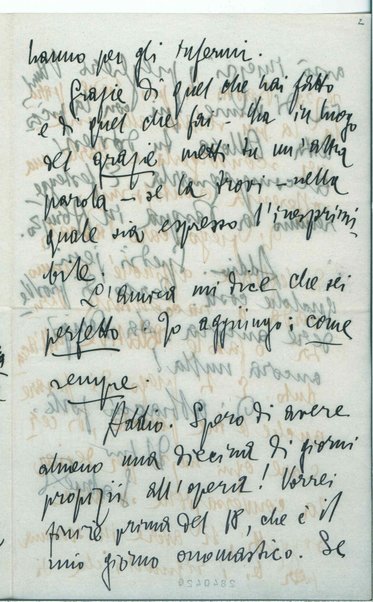 2
hanno per gli infermi.
Grazie di quel che hai fatto
e di quel che fai. Ma in luogo
del grazie metti tu un'altra
parola – se la trovi – nella
quale sia espresso l'inesprimi
bile.
L'amica mi dice che sei
perfetto. Io aggiungo: come
sempre.
Addio. Spero di avere
almeno una diecina di giorni
propizii all'opera! Vorrei
finire prima del 18, che è il
mio giorno onomastico. Se